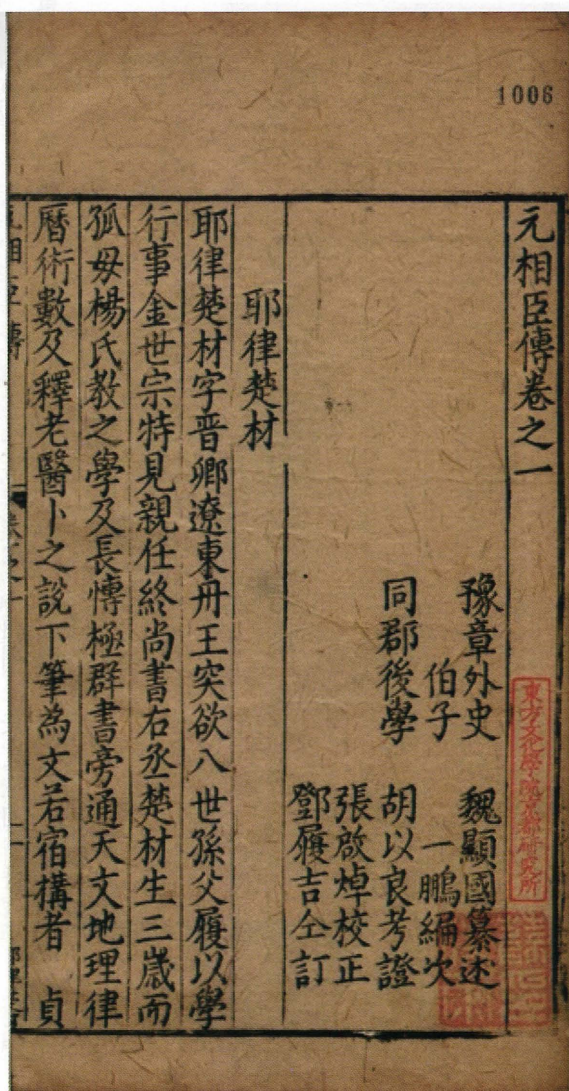 1006
元相臣傳卷之一
豫章外史 魏顯國纂述
伯子 一鵬編次
同郡後學 胡以良考證
張啟焯校正
鄧履吉仝訂
耶律楚材
耶律楚材字晉卿遼東丹王突欲八世孫父履以學
行事金世宗特見親任終尚書右丞楚材生三歲而
孤母楊氏教之學及長慱極群書旁通天文地理律
曆術數及釋老醫卜之說下筆為文若宿構者 貞
元相臣傳
卷之一
東方文化學院京都研究所